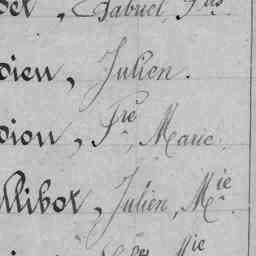 Gabriel, Fçs
dieu, Julien.
dion, Pre, Marie.
llibot, Julien, Mie